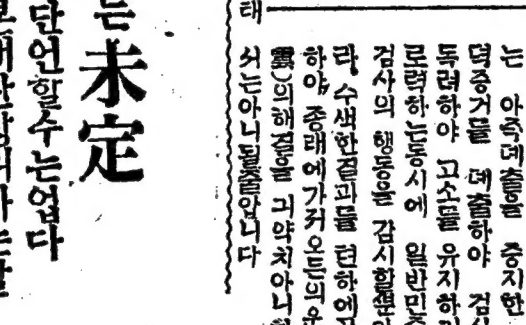 는 아즉데출을 중지한
덕증거물 데출하야 검사
독려하야 고소를 유지하
로력하는동시에 일반민중
검사의 행동을 감시할뿐아
라, 수색한결과를 텬하에
하야, 종래에가저오든의운
雲)의해결을 긔약치아니
쉬는아니될줄암니다
태
는 未定
단언할수는업다